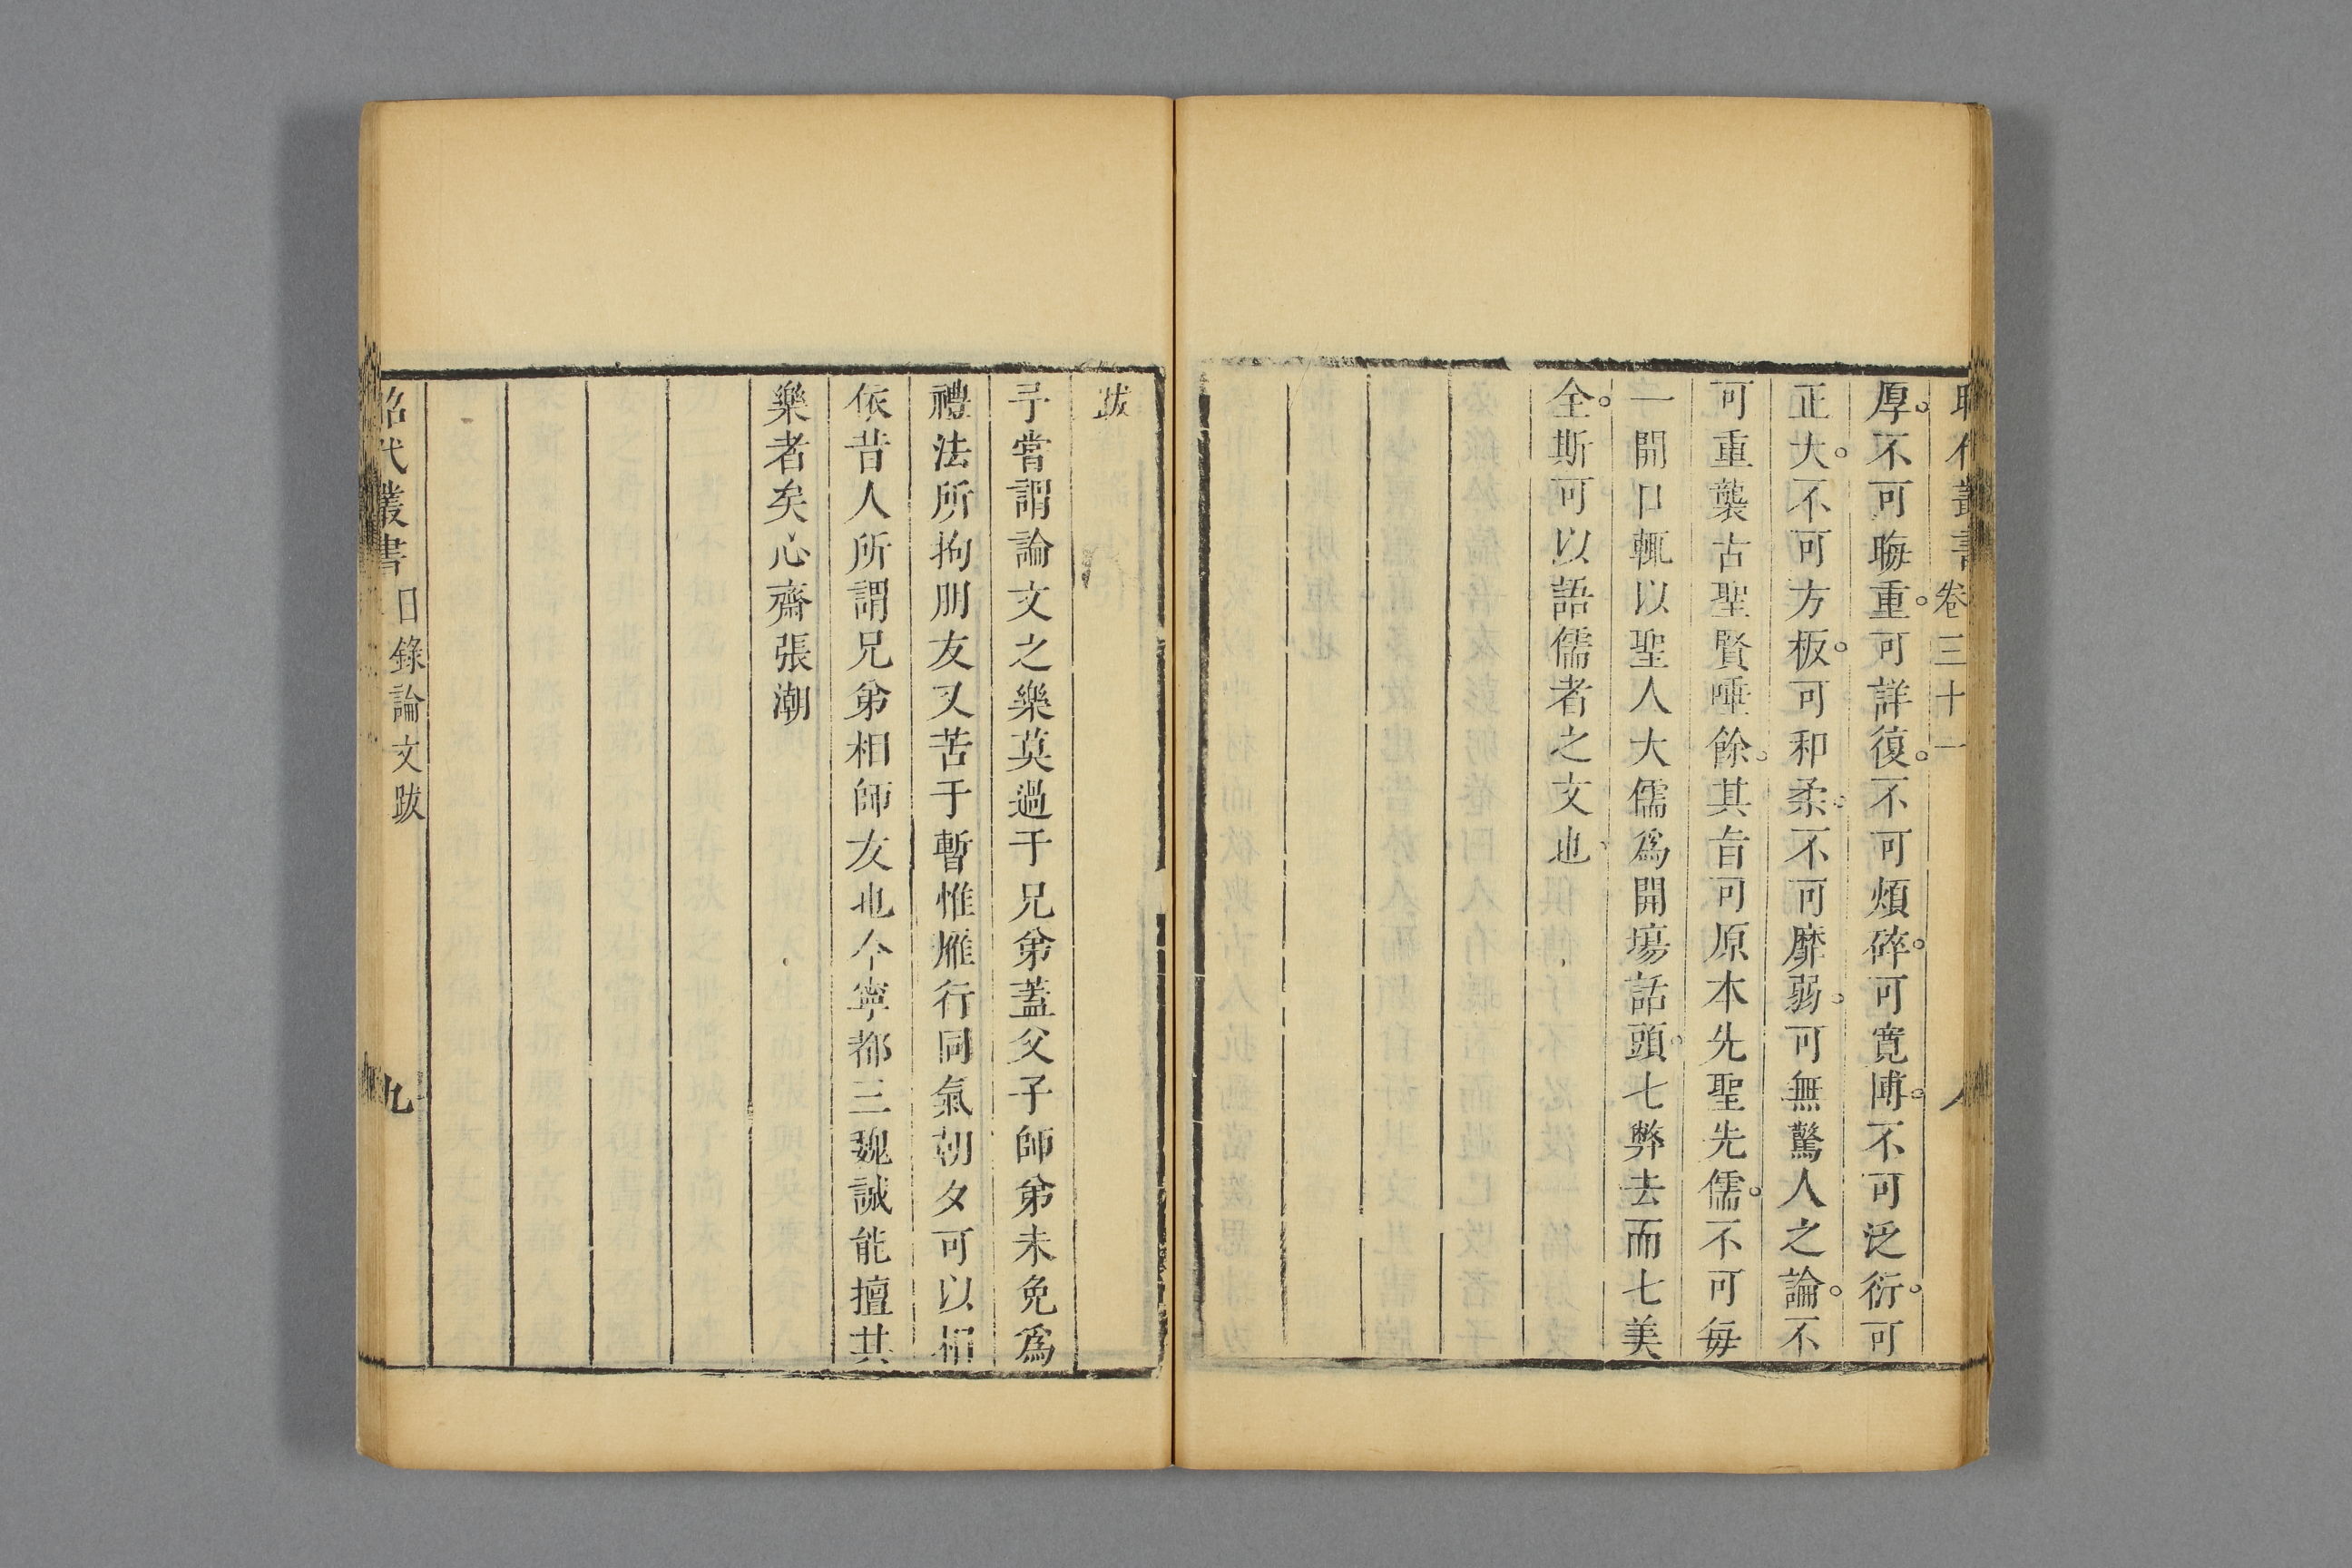 昭代叢書 卷三十一 八
厚。不可晦重。可詳復。不可煩碎。可寬博。不可泛衍。可
正大。不可方板。可和柔。不可靡弱。可無驚人之論。不
可重襲古聖賢唾餘。其旨可原本先聖先儒。不可每
一開口輒以聖人大儒爲開場話頭。七弊去而七美
全。斯可以語儒者之文也。
跋
予嘗謂論文之樂莫過于兄弟蓋父子師弟未免爲
禮法所拘朋友又苦于暫惟雁行同氣朝夕可以相
依昔人所謂兄弟相師友也今寧都三魏誠能擅其
樂者矣心齋張潮
昭代叢書 日錄論文跋 九